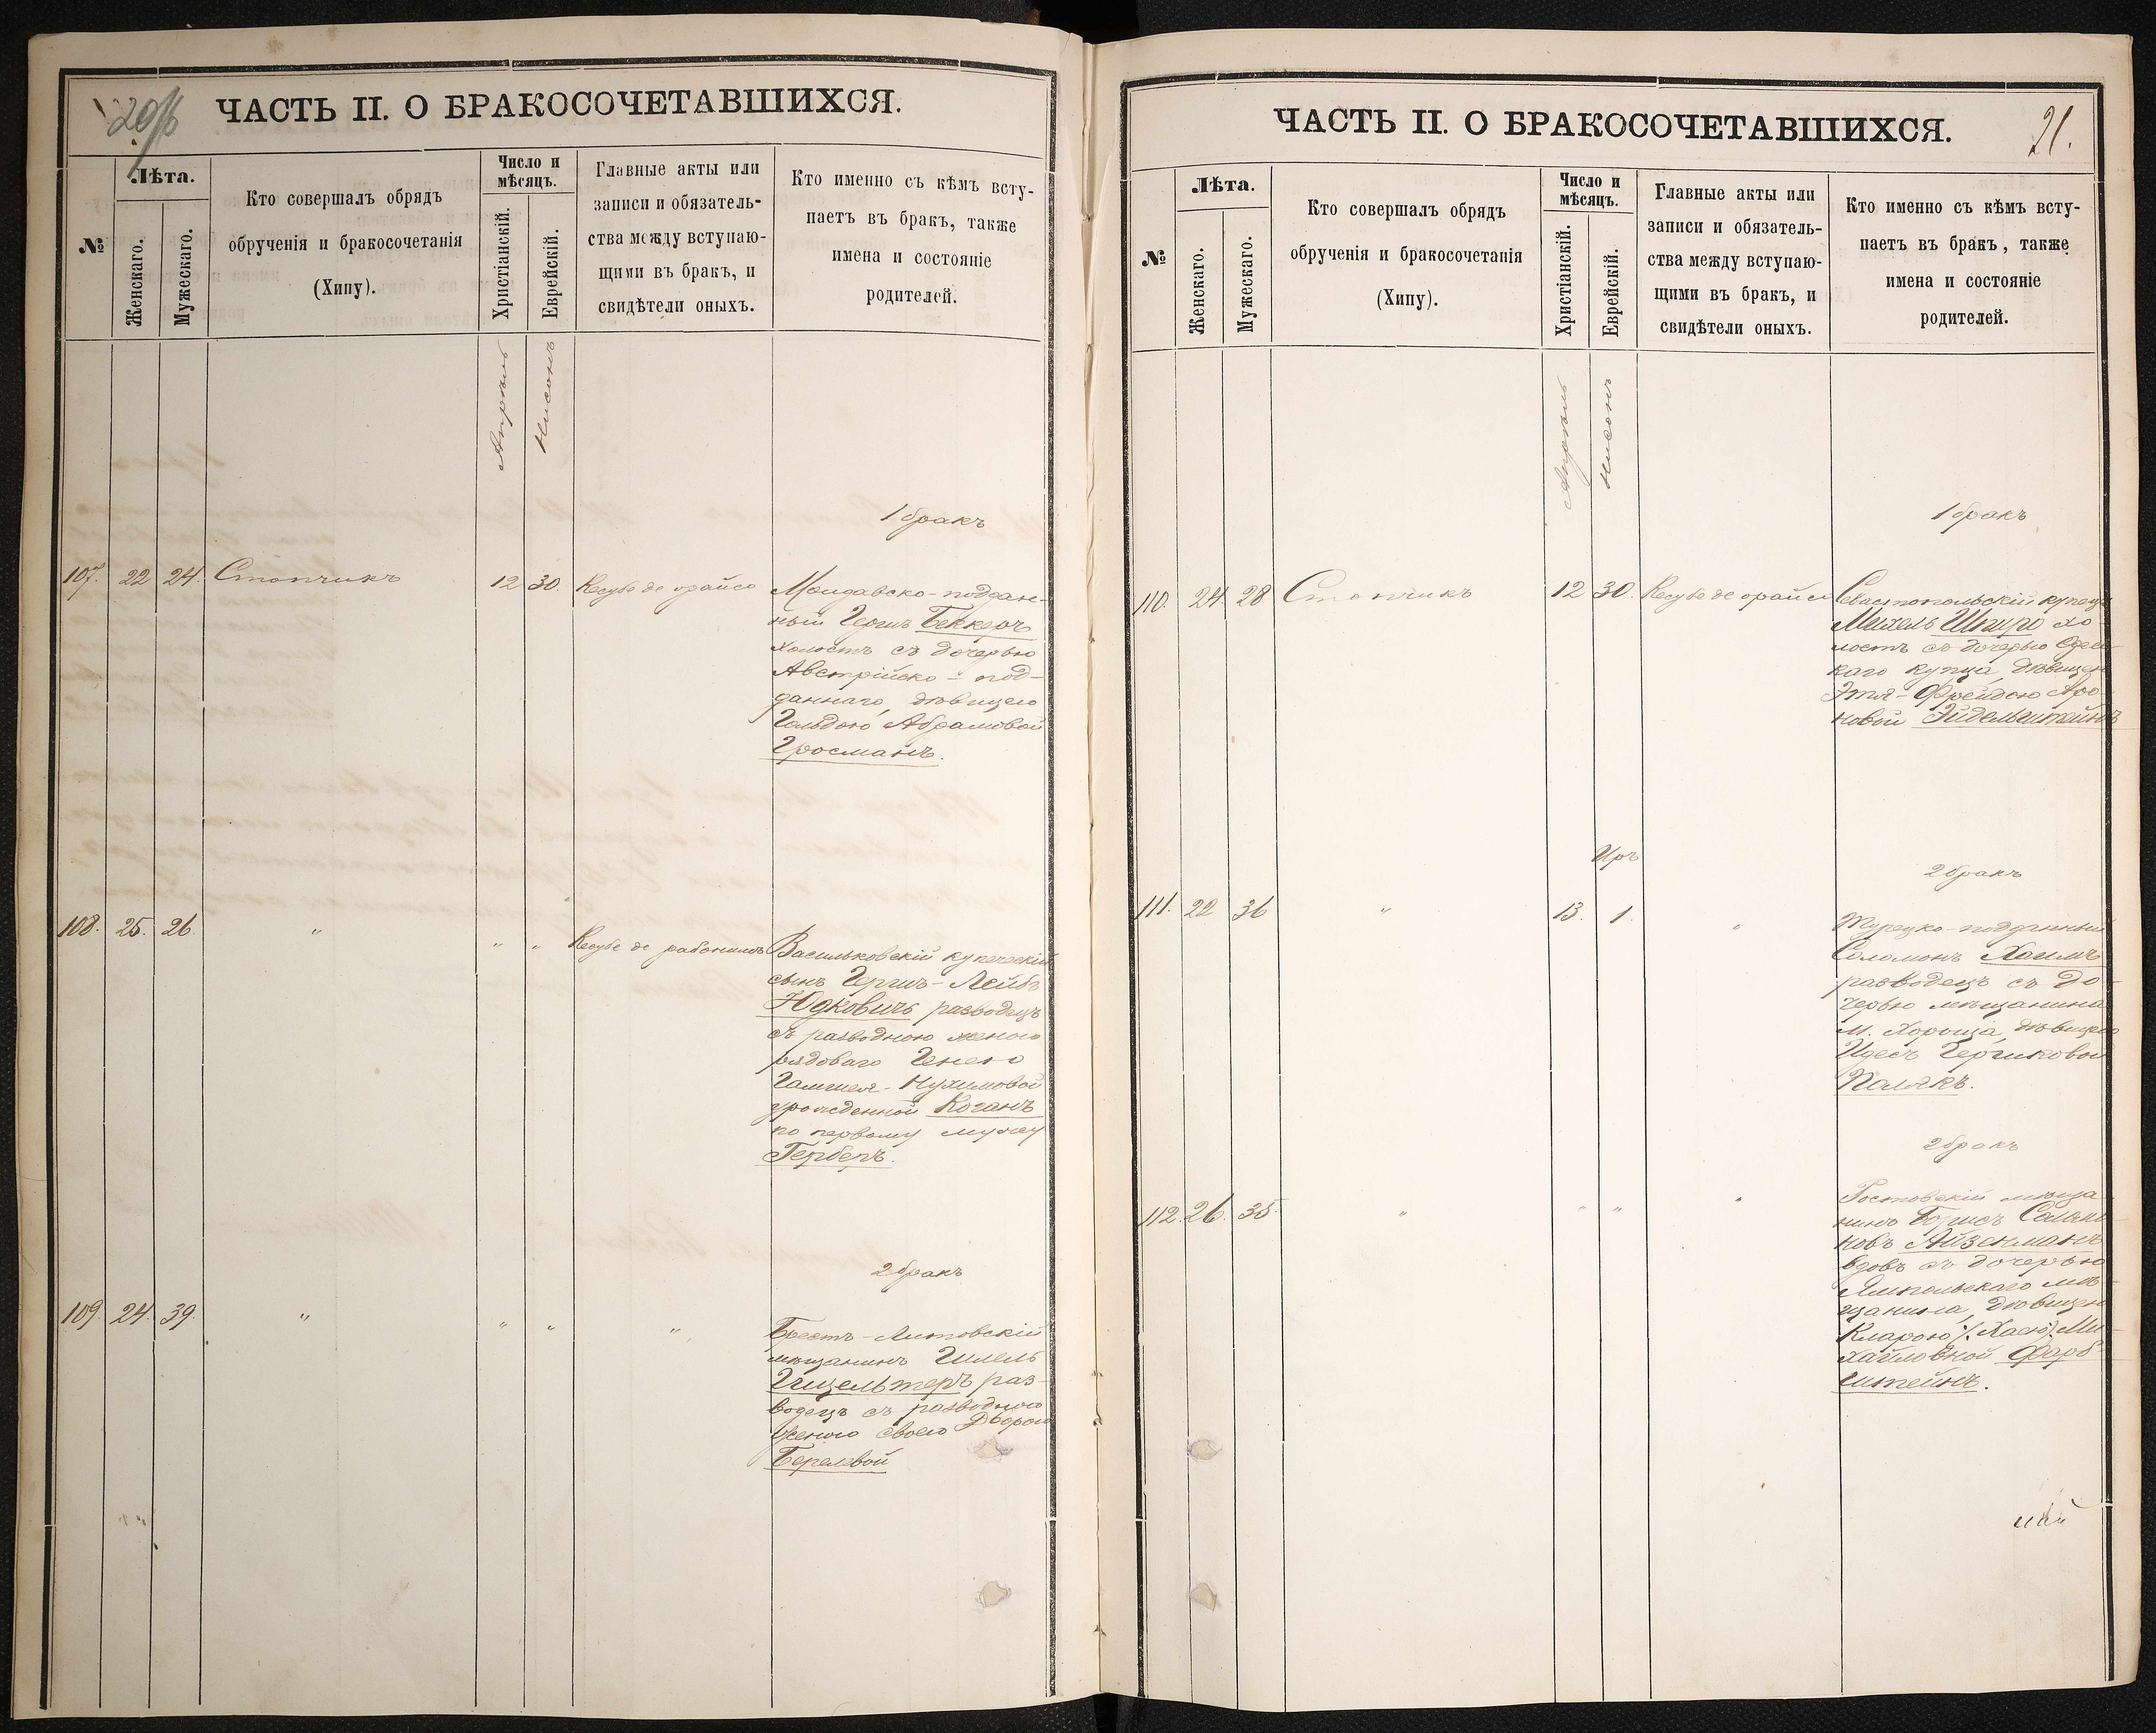 20об
ЧАСТЬ II. О БРАКОСОЧЕТАВШИХСЯ.
№
Лѣта.
Женскаго.
Мужескаго.
Кто совершалъ обрядъ
обрученія и бракосочетанія
(Хипу).
Число и
мѣсяцъ.
Христіанскій.
Еврейскій.
Главные акты или
записи и обязатель-
ства между вступаю-
щими въ бракъ, и
свидѣтели оныхъ.
Кто именно съ кѣмъ всту-
паетъ въ бракъ, также
имена и состояніе
родителей.
Апрѣль
Нисонъ
1 бракъ
107. 22 24. Стопчикъ 12 30. Кесубе де орайсо
Молдавско-поддан-
ный Гершъ Беккеръ
холостъ съ дочерью
Австрійско-под-
даннаго, дѣвицею
Гольдою Абрамовой
Гросманъ.
108. 25. 26. " " " Кесубе де рабонимъ
Васильковскій купеческій
сынъ Гершъ-Лейбъ
Юдковичъ разводецъ
съ разводною женою
рядоваго Генею
Нухимовой
урожденной Коганъ
по первому мужу
Герберъ.
2 бракъ
109. 24. 39. " " " "
Брестъ-Литовскій
мѣщанинъ Гилель
раз-
водецъ съ разводною
женою своею Дворою
Берелевой
ЧАСТЬ II. О БРАКОСОЧЕТАВШИХСЯ.
21.
№
Лѣта.
Женскаго.
Мужескаго.
Кто совершалъ обрядъ
обрученія и бракосочетанія
(Хипу).
Число и
мѣсяцъ.
Христіанскій.
Еврейскій.
Главные акты или
записи и обязатель-
ства между вступаю-
щими въ бракъ, и
свидѣтели оныхъ.
Кто именно съ кѣмъ всту-
паетъ въ бракъ, также
имена и состояніе
родителей.
Апрѣль
Нисонъ
1 бракъ
110. 24. 28 Стопчикъ 12 30. Кесубе де орайсо
Севастопольскій купецъ
Михель Шпиро хо-
лостъ съ дочерью Одес-
каго купца, дѣвицею
Этя-Фрейдою Аро-
новой Эйдельштейнъ
Иръ
2 бракъ
111. 22 36 " 13. 1. "
Турецко-подданный
Соломонъ Хаимъ
разводецъ съ до-
черью мѣщанина
м. Хороща, дѣвицею
Идесъ Гершковой
Полякъ.
2 бракъ
112. 26. 35. " " " "
Ростовскій мѣща-
нинъ Борисъ
Айзенманъ
вдовъ съ дочерью
Ямпольскаго мѣ-
щанина, дѣвицею
Кларою /:Хаею:/ Ми-
хайловной Фарб-
штейнъ.